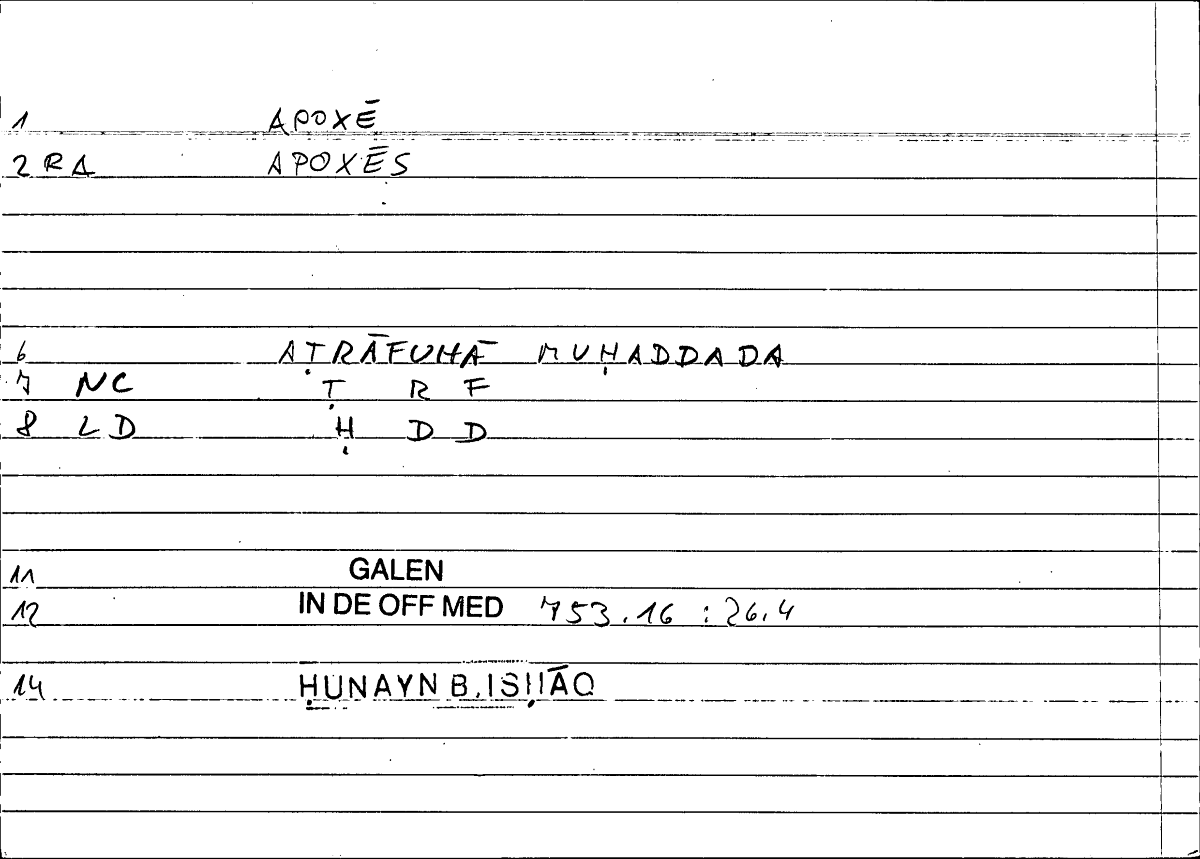 1 APOXĒ
2 RA APOXĒS
6 AṬRĀFUHĀ MUḤADDADA
7 NC Ṭ R F
8 LD Ḥ D D
11 GALEN
12 IN DE OFF MED 753.16 : 26.4
14 ḤUNAYN B. ISḤĀQ